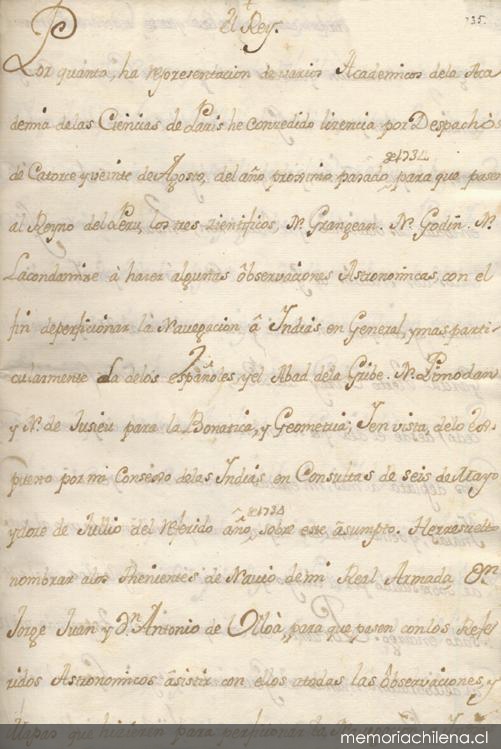 El Rey.
135.
Por quanto, ha representacion de varios Academicos dela Aca
demia delas Ciencias de Paris he concedido licencia por Despachos
de 1734
de Catorce y veinte de Agosto, del año proximo pasado para que pasen
al Reyno del Peru, los tres zientificos, Mr. Grangean. Mr. Godin. Mr.
Lacondamine à hacer algunas observaciones Astronomicas, con el
fin deperficionar la Navegacion â Indias en General, y mas parti-
cularmente La delos Españoles, y el Abad dela Gribe. Mr. Pimodan
y Mr. de Jusieu para la Botanica, y Geometria; Ien vista, delo ex-
puesto por mi Consexo delas Indias en Consultas de seis de Mayo
de 1734
y doce de Jullio del referido año, sobre este âsumpto. Herresuelto
nombrar alos Thenientes de Navio de mi Real Armada Dn
Jorge Juan y Dn Antonio de Ulloà, para que pasen conlos Refe-
ridos Astronomicos âsistir con ellos atodas las Observaciones, y
Mapas que hicieren para perficionar la
memoriachilena.cl